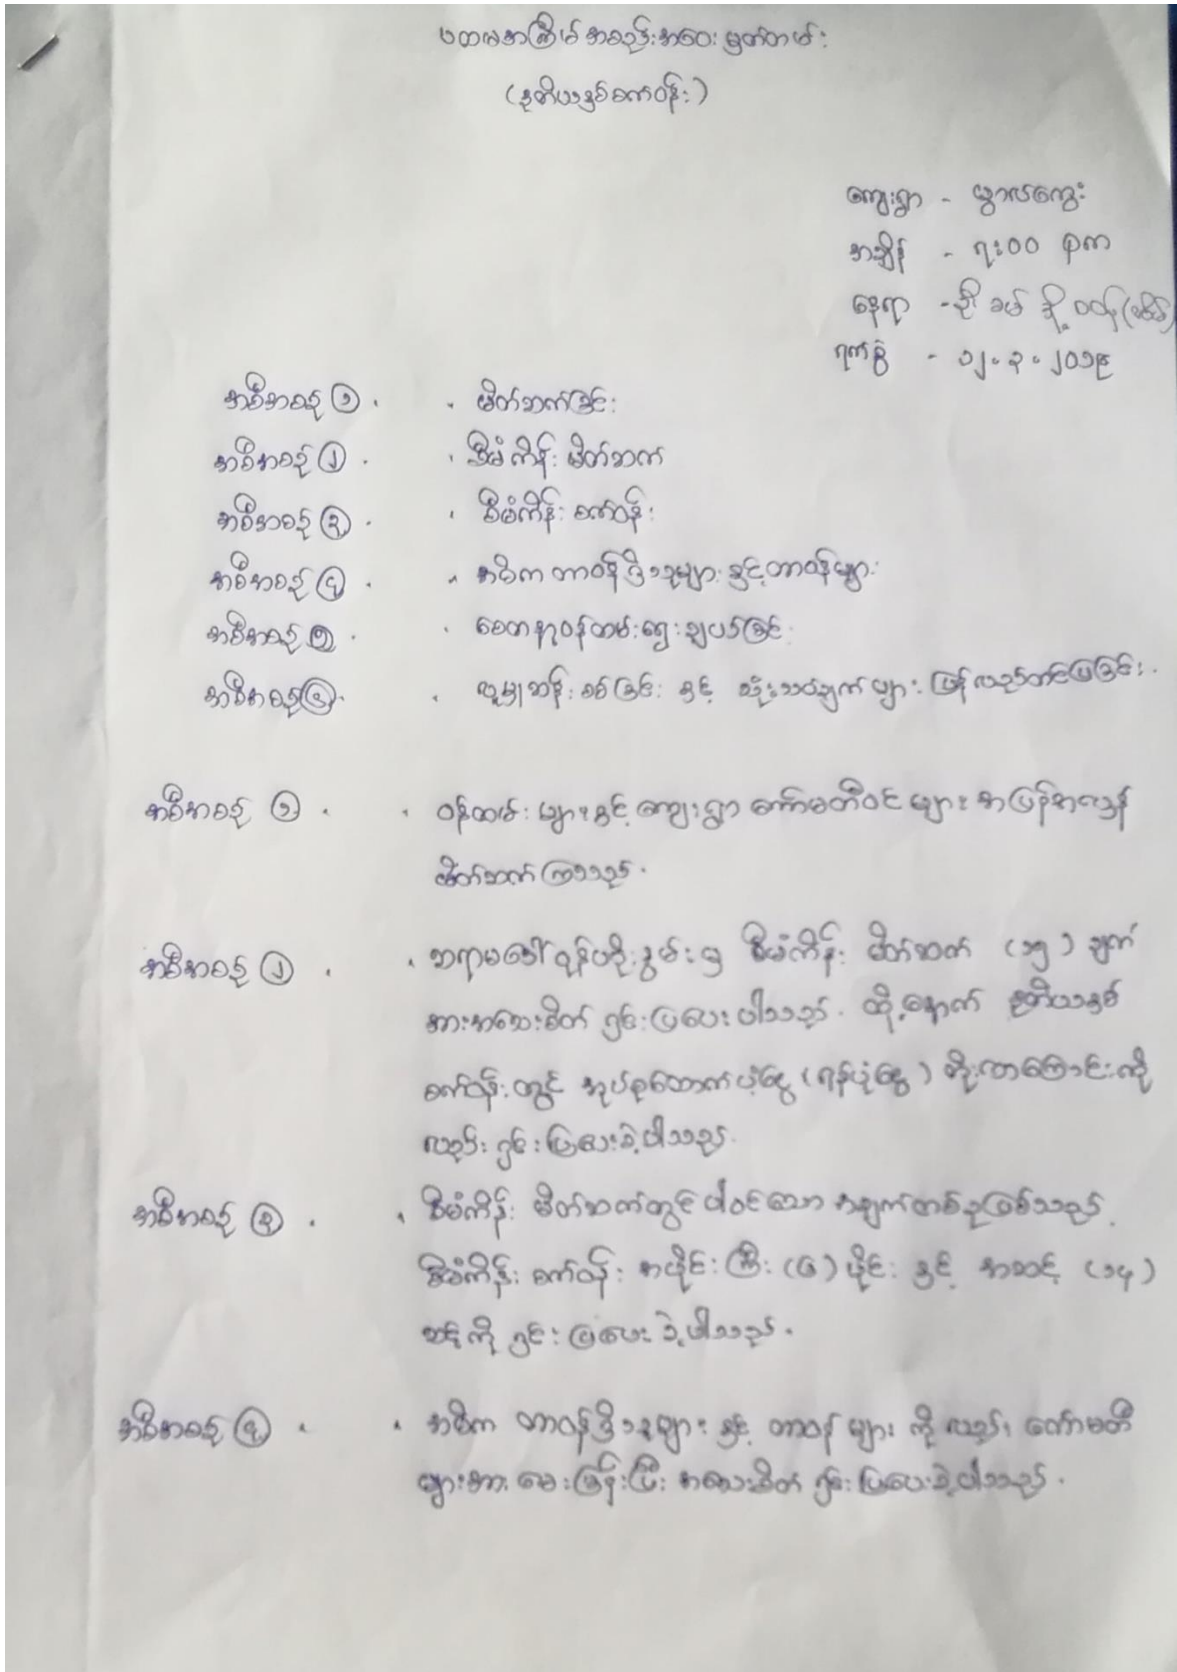 ပထမအကြိမ် အစည်းအဝေး မှတ်တမ်း
(ဒုတိယနှစ်စက်ဝန်း)
ကျေးရွာ -
အချိန် - ၇:၀၀
နေရာ - ဦး ခမ်
ရက်စွဲ - ၁၂.၃.၂၀၁၉
အစီအစဉ် ၁ . . မိတ်ဆက်ခြင်း
အစီအစဉ် ၂ . . စီမံကိန်း မိတ်ဆက်
အစီအစဉ် ၃ . . စီမံကိန်း စက်ဝန်း
အစီအစဉ် ၄ . . အဓိက တာဝန်ရှိသူများ နှင့် တာဝန်များ
အစီအစဉ် ၅ . . စေတနာ့ဝန်ထမ်းရွေးချယ်ခြင်း
အစီအစဉ် ၆ . . လူမှုဆန်းစစ်ခြင်း နှင့် သုံးသပ်ချက်များ ပြန်လည်တင်ပြခြင်း .
အစီအစဉ် ၁ . . ဝန်ထမ်းများနှင့် ကျေးရွာ ကော်မတီဝင်များ အပြန်အလှန်
မိတ်ဆက်ကြသည် .
အစီအစဉ် ၂ . . ဆရာမဒေါ် မှ စီမံကိန်း မိတ်ဆက် (၁၅) ချက်
အားအသေးစိတ် ရှင်းပြပေးပါသည် . ထို့နောက် ဒုတိယနှစ်
စက်ဝန်းတွင် အုပ်စုထောက်ပံ့ငွေ (ရန်ပုံငွေ) တိုးလာကြောင်းကို
လည်း ရှင်းပြပေးခဲ့ပါသည် .
အစီအစဉ် ၃ . . စီမံကိန်း မိတ်ဆက်တွင် ပါဝင်သော အချက်တစ်ခုဖြစ်သည် .
စီမံကိန်း စက်ဝန်း အပိုင်းကြီး (၆) ပိုင်း နှင့် အဆင့် (၁၄)
ဆင့်ကို ရှင်းပြပေးခဲ့ပါသည် .
အစီအစဉ် ၄ . . အဓိက တာဝန်ရှိသူများ နှင့် တာဝန်များ ကို လည်း ကော်မတီ
များအား မေးမြန်းပြီး အသေးစိတ် ရှင်းပြပေးခဲ့ပါသည် .